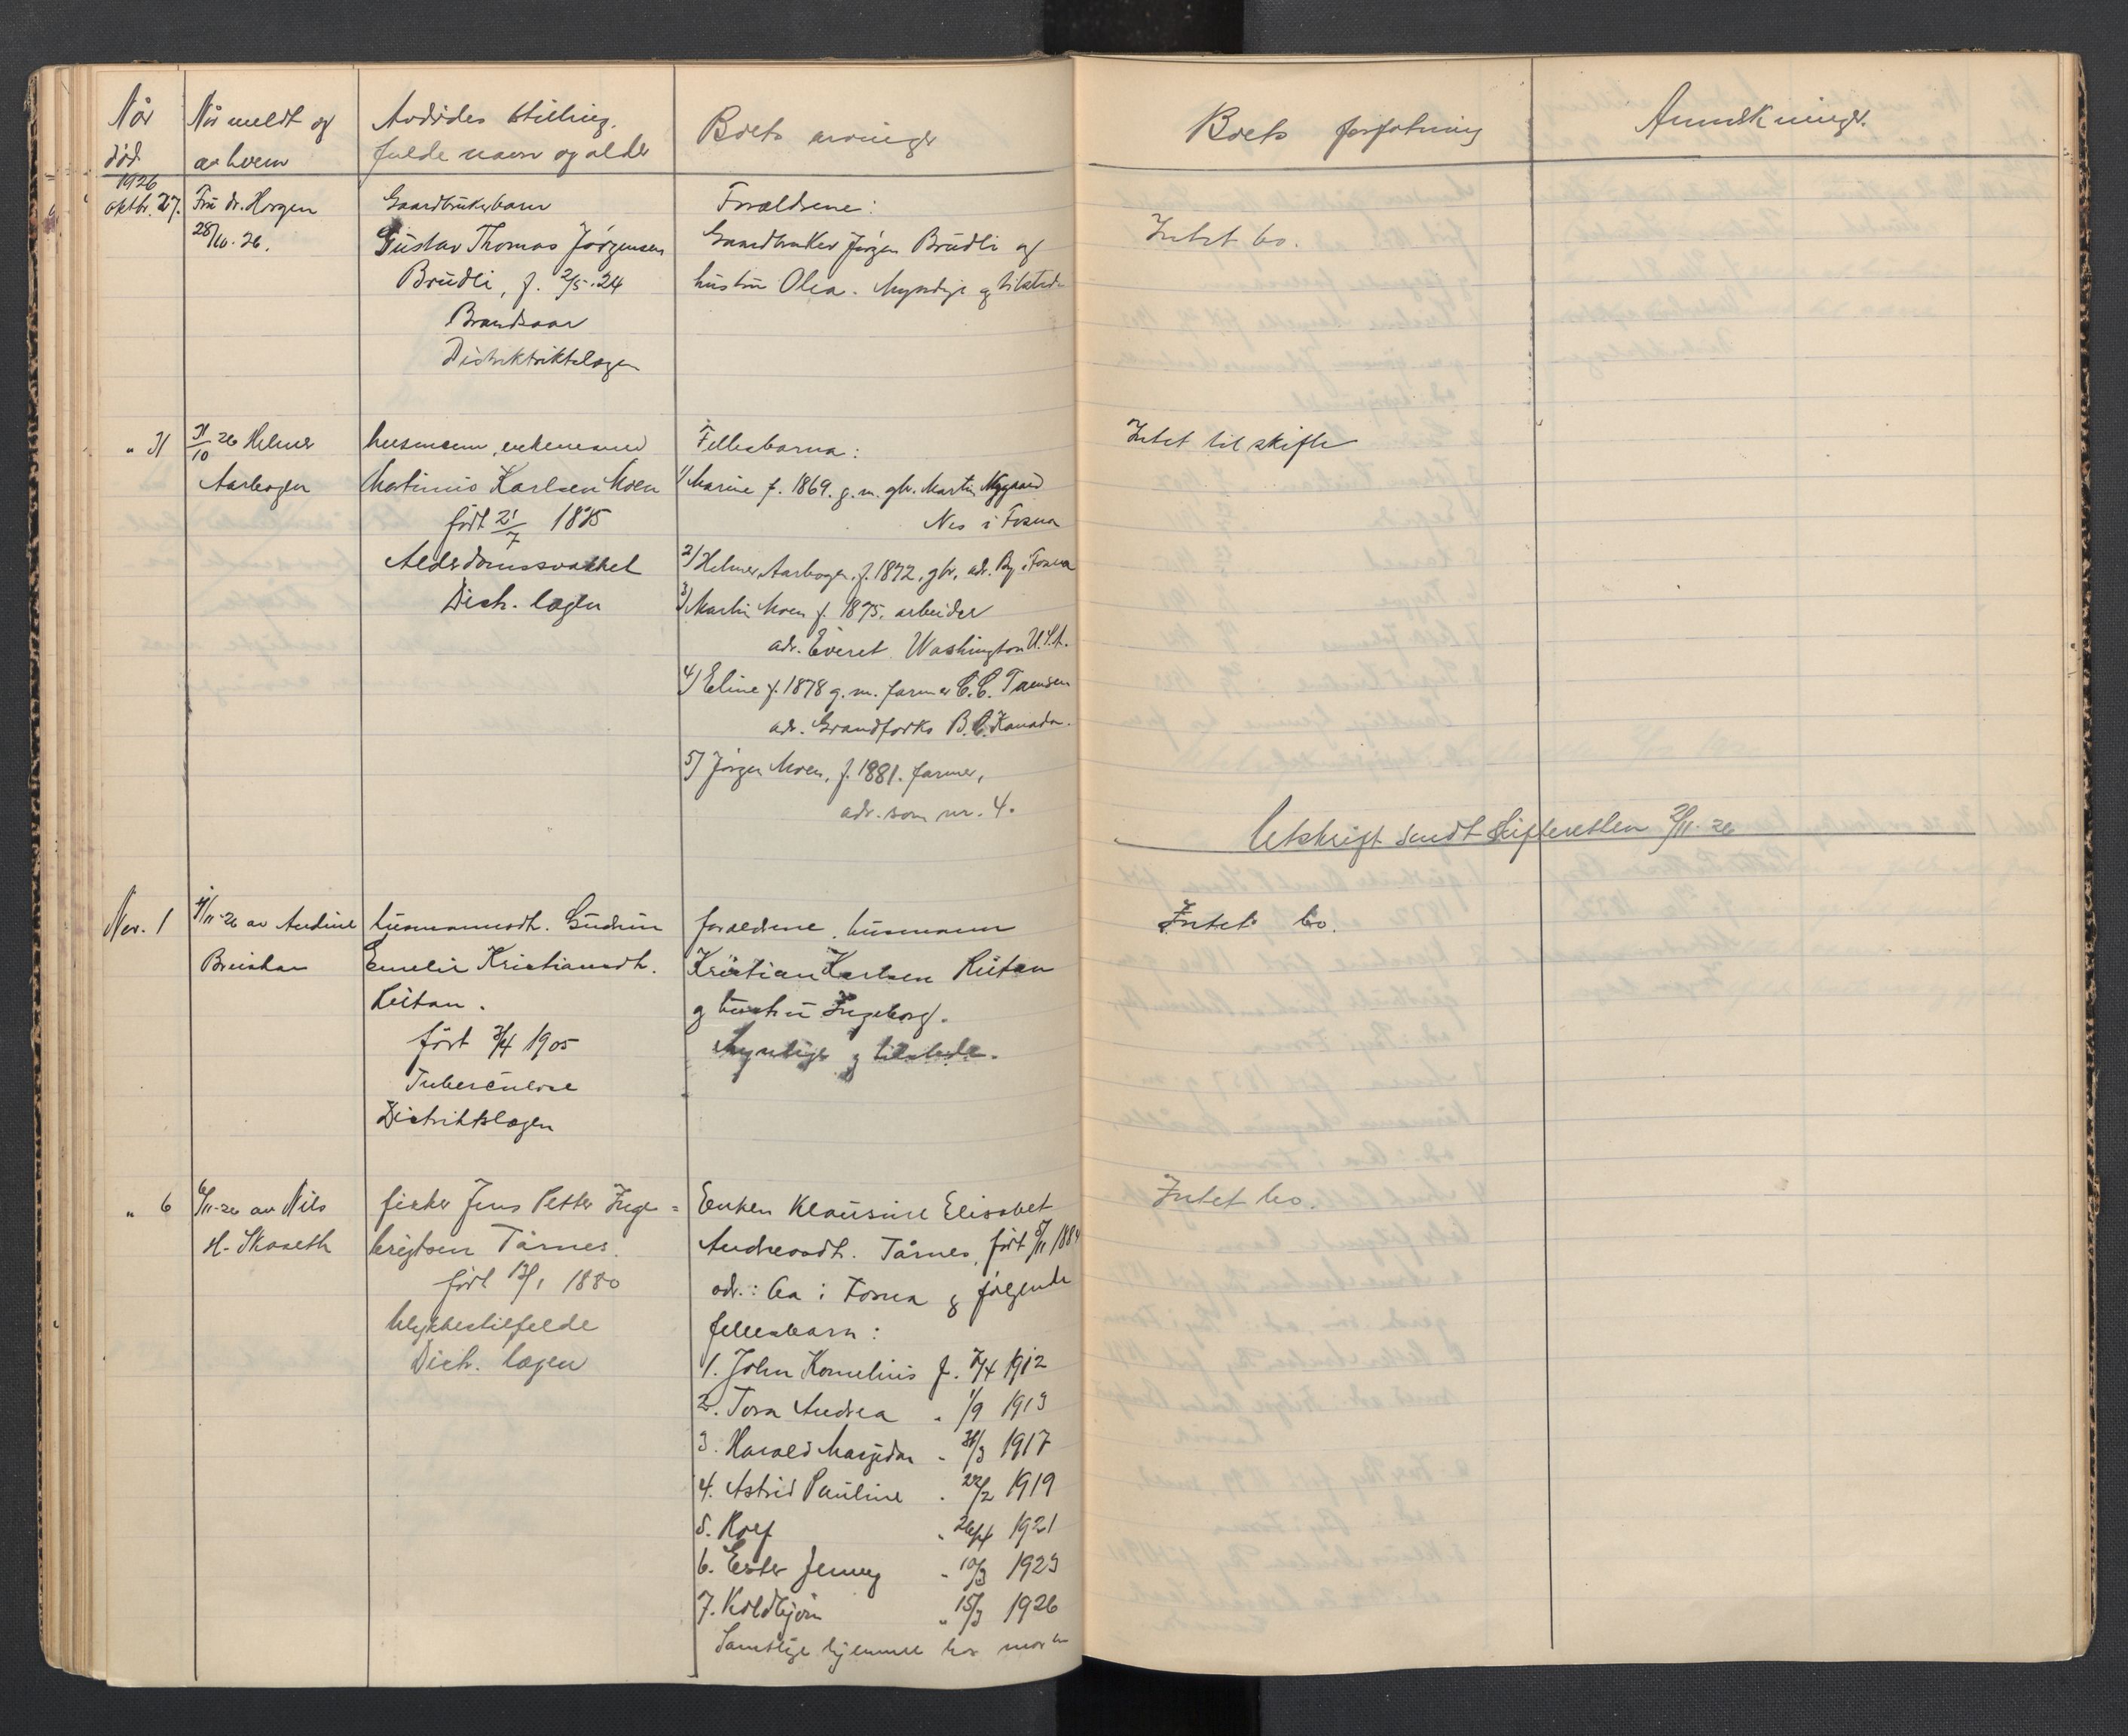 Når død
Når meldt og av hvem
Avdødes stilling, fulde navn og alder
Boets arvinger
Boets forfatning
Anmerkninger.
1926
oktbr. 27.
Fru dr. Horgen
28/10. 26.
Gaardbrukerbarn
Gustav Thomas Jørgensen
Brudli, f. 2/5. 24
Brandsaar
Distriktriktslægen
Forældrene:
Gaardbruker Jørgen Brudli og
hustru Olea. Myndige og tilstede
Intet bo.
" 31
31/10 26 Helmer
Aarbogen
husmann, enkemand
Matinus Karlsen Moen
født 21/7 1835
Alderdomssvakhet
Distr. lægen
Fellesbarna:
1/ Marine f. 1869. g. m. gbr. Martin Nygaard
Nes i Fosna
2/ Helmer Aarbogen, f. 1872, gbr. adr. By i Fosna
3/ Martin Moen f. 1875. arbeider
adr. Everet Washington U.S.A.
4/ Eline f. 1878 g. m. farmer C. C.
adr. Grandforks B.C. Kanada.
5/ Jørgen Moen, f. 1881. farmer,
adr. som nr. 4.
Intet til skifte
Utskrift sendt skifteretten 2/11. 26
Nov. 1
4/11-26 av Andine
husmannsdt. Gudrun
Emelie Kristiansdt.
Reitan.
født 3/4 1905
Tuberculose
Distriktslægen
foreldrene, husmann
Kristian Karlsen Reitan
og hustru Ingeborg.
Myndige og tilstede.
Intet bo.
" 6
6/11-26 av Nils
H. Skaseth
fisker Jens Petter Inge=
brigtsen Tårnes.
født 13/1 1880
Ulykkestilfelde
Distr. lægen
Enken Klausine Elisabet
Andreasdt. Tårnes, født 5/11 1884
adr.: Aa i Fosna og følgende
fellesbarn:
1. John Kornelius f. 7/4 1912
2. Tora Andrea " 1/9 1913
3. Harald Marjedon " 31/3 1917
4. Astrid Pauline " 22/2 1919
5. Rolf " 26/4 1921
6. Ester Jenny " 10/3 1923
7. Koldbjørn " 15/3 1926
Samtlige hjemme hos moren
Intet bo.